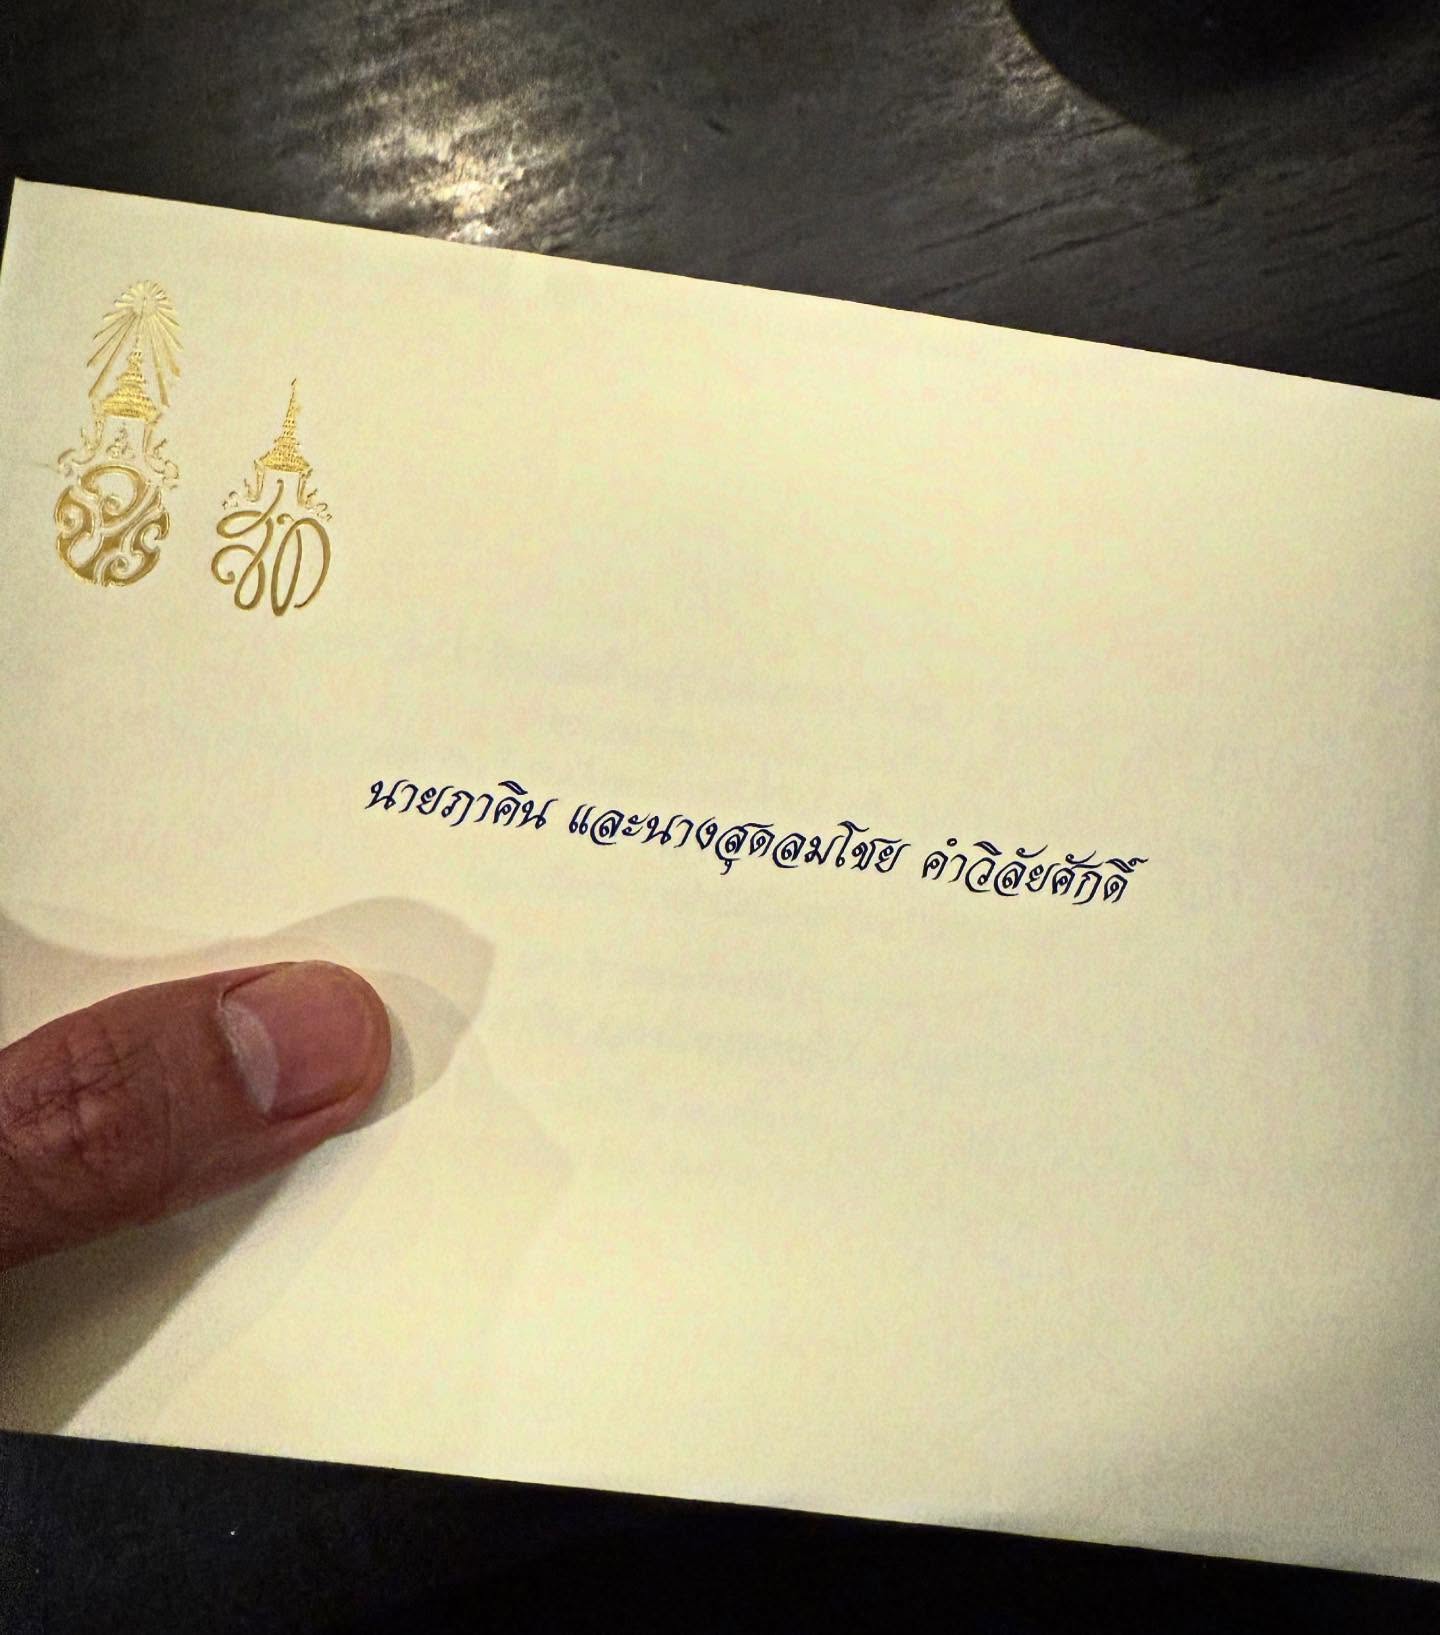 วปร
สท
นายภาคิน และนางสุดลมโชย คำวิลัยศักดิ์